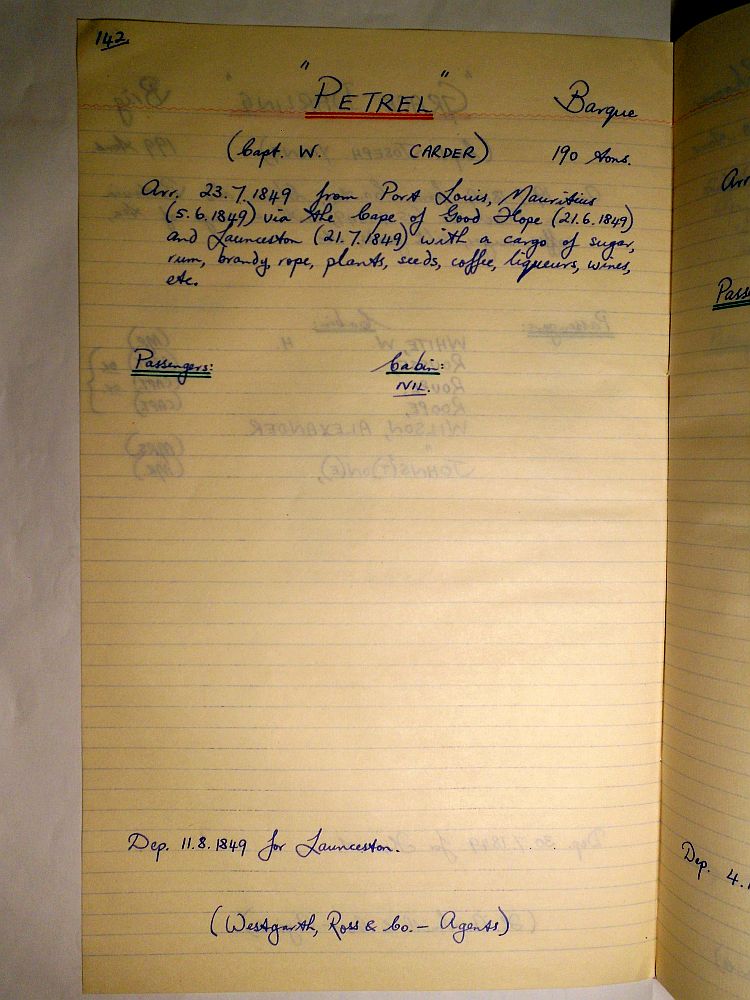 142
"PETREL" Barque
(Capt. W. CARDER) 190 tons.
Arr. 23.7.1849 from Port Louis, Mauritius
(5.6.1849) via the Cape of Good Hope (21.6.1849)
and Launceston (21.7.1849) with a cargo of sugar,
rum, brandy, rope, plants, seeds, coffee, liqueurs, wines,
etc.
Passengers: Cabin:
NIL.
Dep. 11.8.1849 for Launceston.
(Westgarth, Ross & Co. – Agents)
Arr
Passe
Dep. 4.